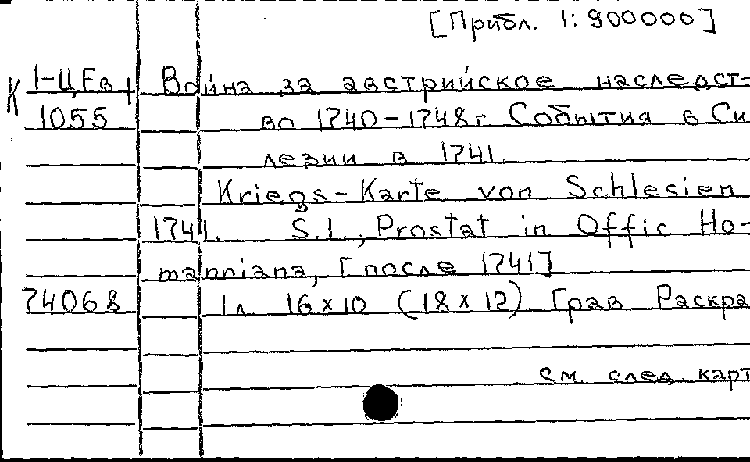 [Прибл. 1:900000]
К 1-ЦЕв Война за австрийское наследст-
1055 во 1740-1748г. События в Си
лезии в 1741.
Kriegs-Karte von Schlesien
1741. S.l., Prostat in Offic Ho-
manniana, [после 1741]
74068 1л 16х10 (18х12) Грав Раскра
см. след. карт